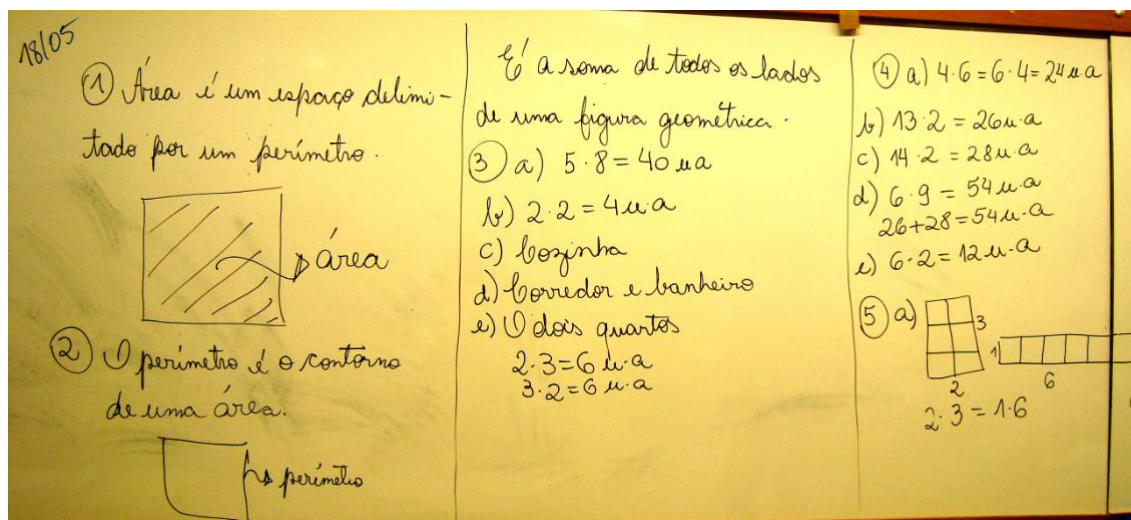 18/05
① Área é um espaço delimi-
tado por um perímetro.
área
② O perímetro é o contorno
de uma área.
perímetro
É a soma de todos os lados
de uma figura geométrica.
③ a) 5·8=40 ua
b) 2·2=4u·a
c) Cozinha
d) Corredor e banheiro
e) O dois quartos
2·3=6 u·a
3·2=6 u·a
④ a) 4·6=6·4=24 u·a
b) 13·2=26u·a
c) 14·2=28u·a
d) 6·9=54u·a
26+28=54u·a
e) 6·2=12u·a
⑤ a) 3
1
2 6
2·3=1·6